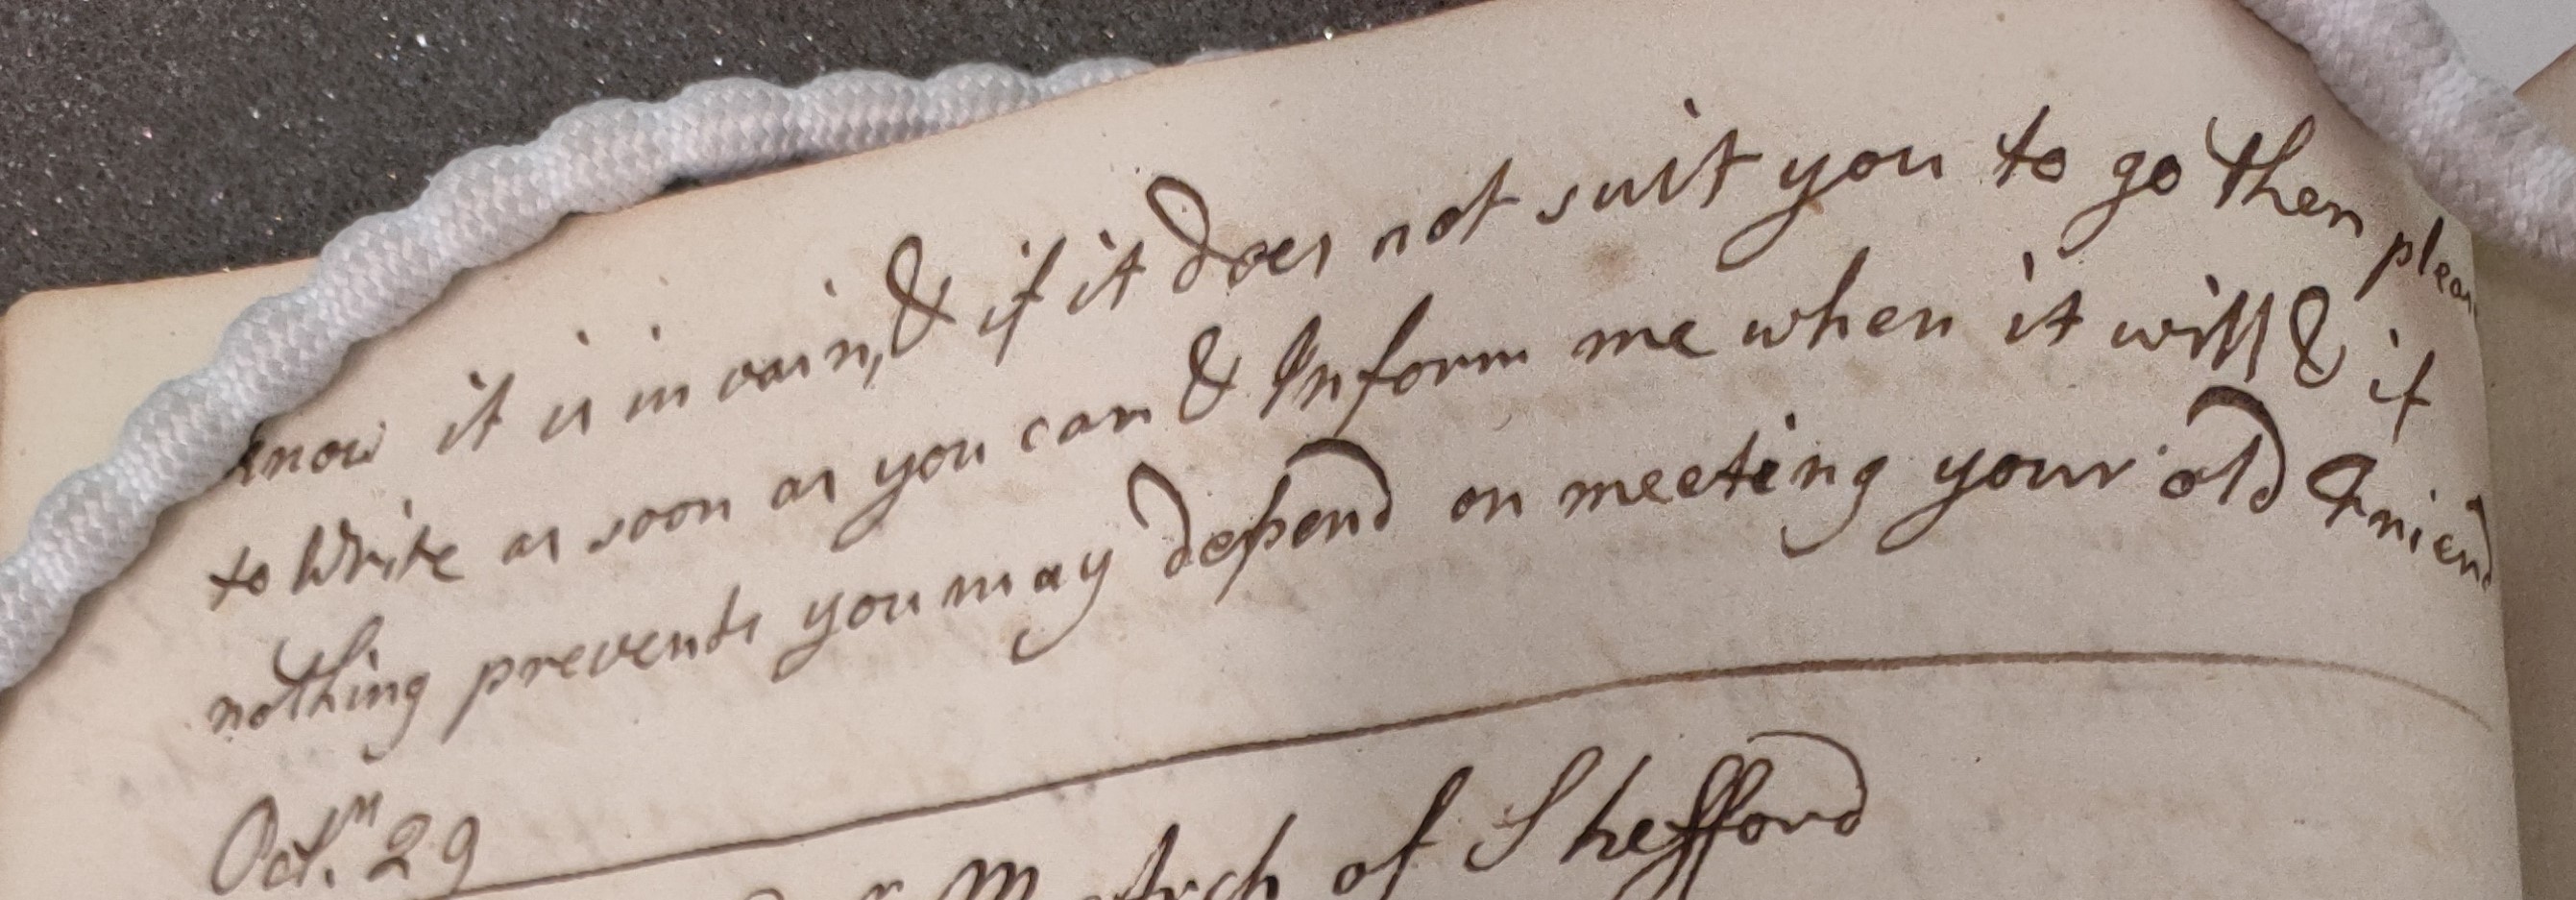 know it is in vain, & if it does not suit you to go then pleas
to Write as soon as you can & Inform me when it will & if
nothing prevents you may depend on meeting your old Friend
Oct.ʳ 29
of Shefford